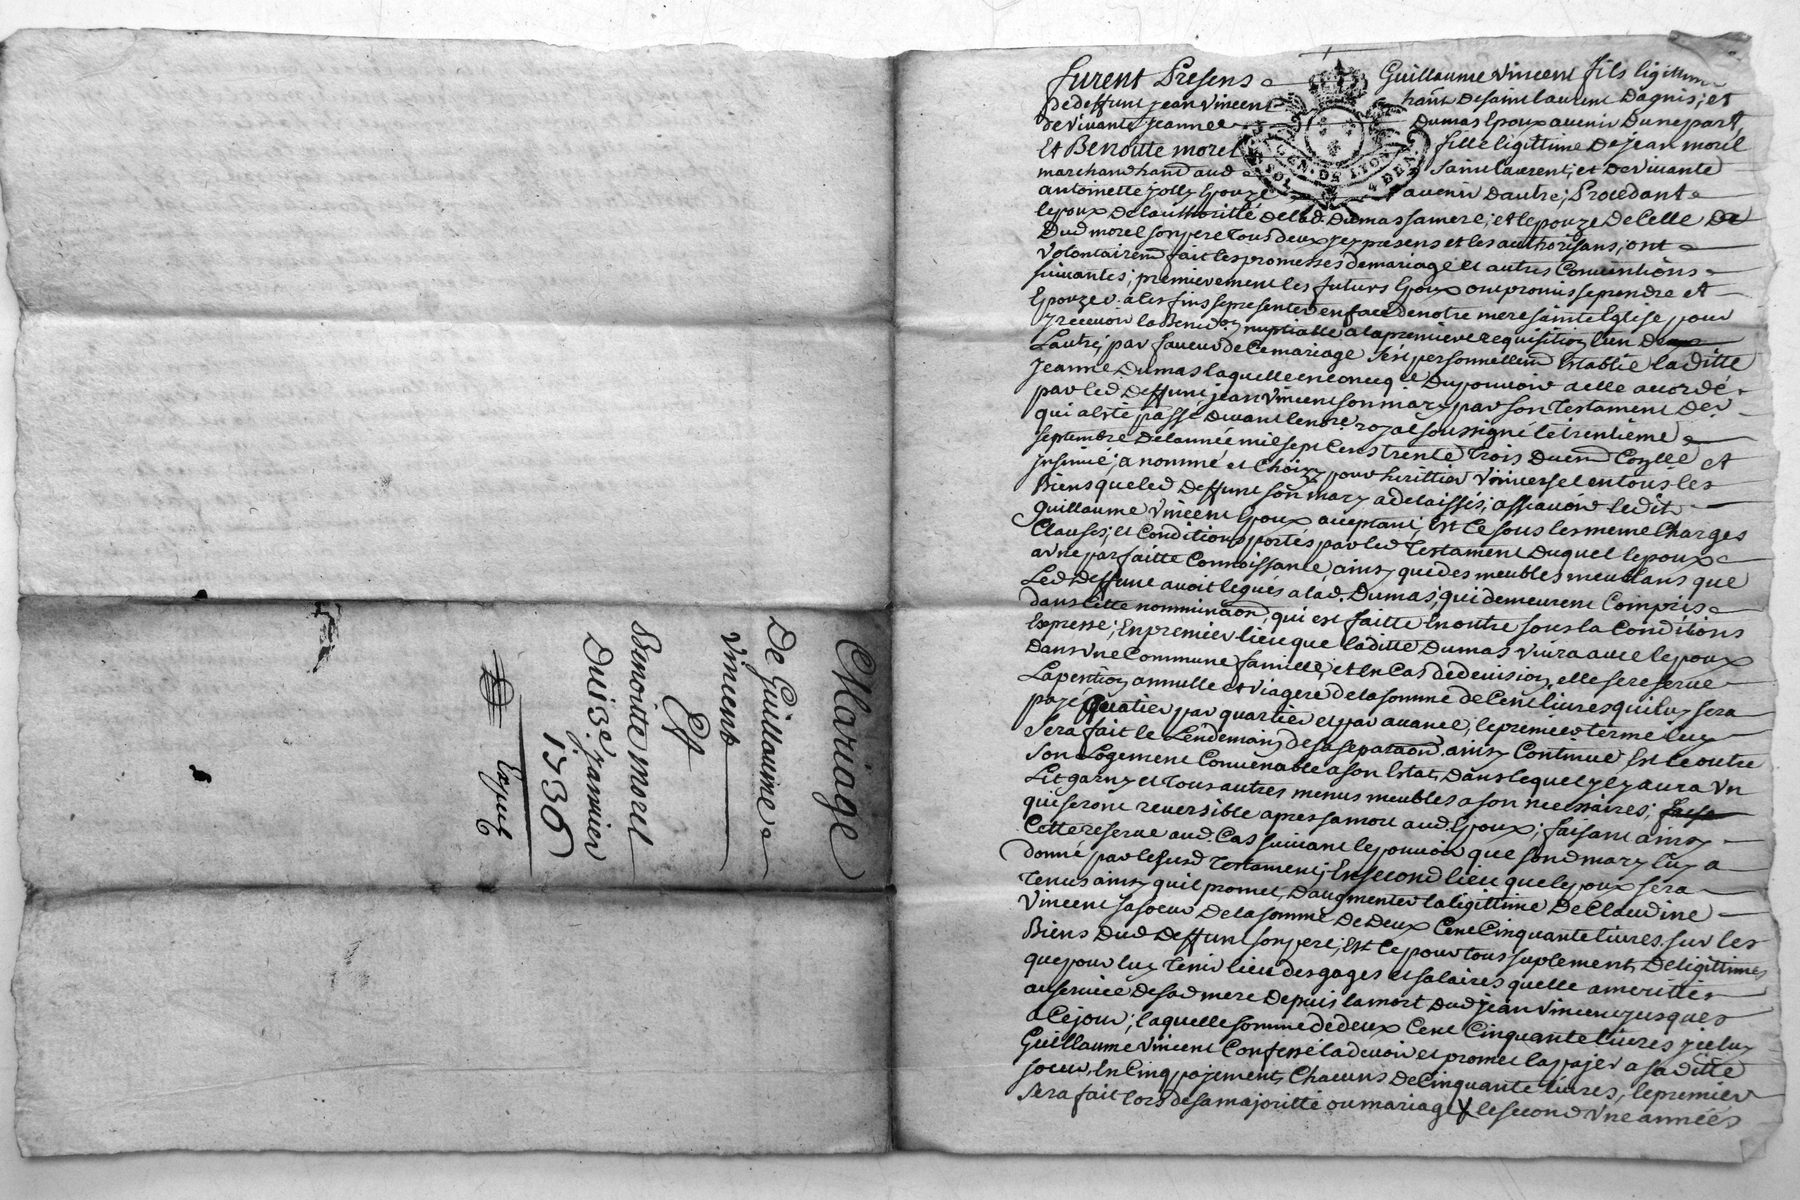 Mariage
De Guillaume
Vincent
Et
Benoitte morel
Du 13e. janvier
1736
Furent Presens Guillaume Vincent fils ligittime
de deffunt jean Vincent hant de saint laurent Dagnis; et
de Vivante jeanne Dumas Epoux avenir Dune part,
Et Benoitte morel fille ligittime de jean morel
marchand hant aud saint laurent; et de Vivante
antoinette jolly Epouze avenir dautre; Procedant
lepoux de lauthoritté de lad. Dumas sa mere; et lepouze de Celle
Dud morel son pere tous deux jcy presens et les authorisans; ont
Volontairemt fait les promesses de mariage et autres Conventions
suivantes; premierement les futurs Epoux ont promis se prendre et
Epouzer a les fins se presenter en face de notre mere sainte Eglise pour
y recevoir la Benedon nuptialle a la premiere requisition lun De
Lautre; par faveur de Ce mariage s'est personnellemt Establie laditte
jeanne Dumas laquelle en conseqce Du pouvoir a elle accordé
par led deffunt jean Vincent son mary par son Testament Der
qui a esté passé devant le nore royal soussigné le trentieme
septembre de lannée mil sept Cens trente Trois duemt Conlle et
jnsinué; a nommé et Choisy pour herittier Vniversel en tous les
Biens que led deffunt son mary a delaissés; assavoir ledit
Guillaume Vincent Epoux acceptant, Est Ce sous les meme Charges
Clauses; et Conditions portés par led Testament Duquel lepoux
a vne parfaitte Connoissance ainsy que des meubles meublans que
Led deffunt avoit legués a lad. Dumas; qui demeurent Compris
dans Cette nominaon, qui est faitte en outre sous la Conditions
Expresse; En premier lieu que laditte Dumas vivra avec lepoux
Dans Vne Commune famille, et en Cas de division, elle se reserve
La pention annuelle et viagere de la somme de Cent livres qui luy sera
payé quatier par quartier et par avance, le premier terme luy
sera fait le Lendemain de sa separaon ainsy Continué Est le outre
son Logement Convenable a son Estat, Dans lequel jl y aura Vn
Lit garny et tous autres menus meubles a son necessaires;
qui seront reversible apres sa mort aud. Epoux; faisant ainsy
Cette reserve aud. Cas suivant le pouvoir que sond mary luy a
donné par le susd Testament; En second lieu que lepoux sera
Tenus ainsy qu'il promet, D'augmenter la ligittime De Claudine
Vincent sa soeur De la somme De Deux Cent Cinquante livres sur les
Biens Dud deffunt son pere; Est Ce pour tous suplement De ligittimes
que pour luy Tenir lieu des gages et salaires quelle a merittés
au service de sad mere depuis la mort Dud jean Vincent jusques
a Ce jour; laquelle somme de deux Cent Cinquante livres jcelluy
Guillaume Vincent Confesse la devoir et promet la payer a saditte
soeur, En Cinq payement, Chacuns De Cinquante livres, le premier
sera fait lors de sa majoritté ou mariage le second Vne années